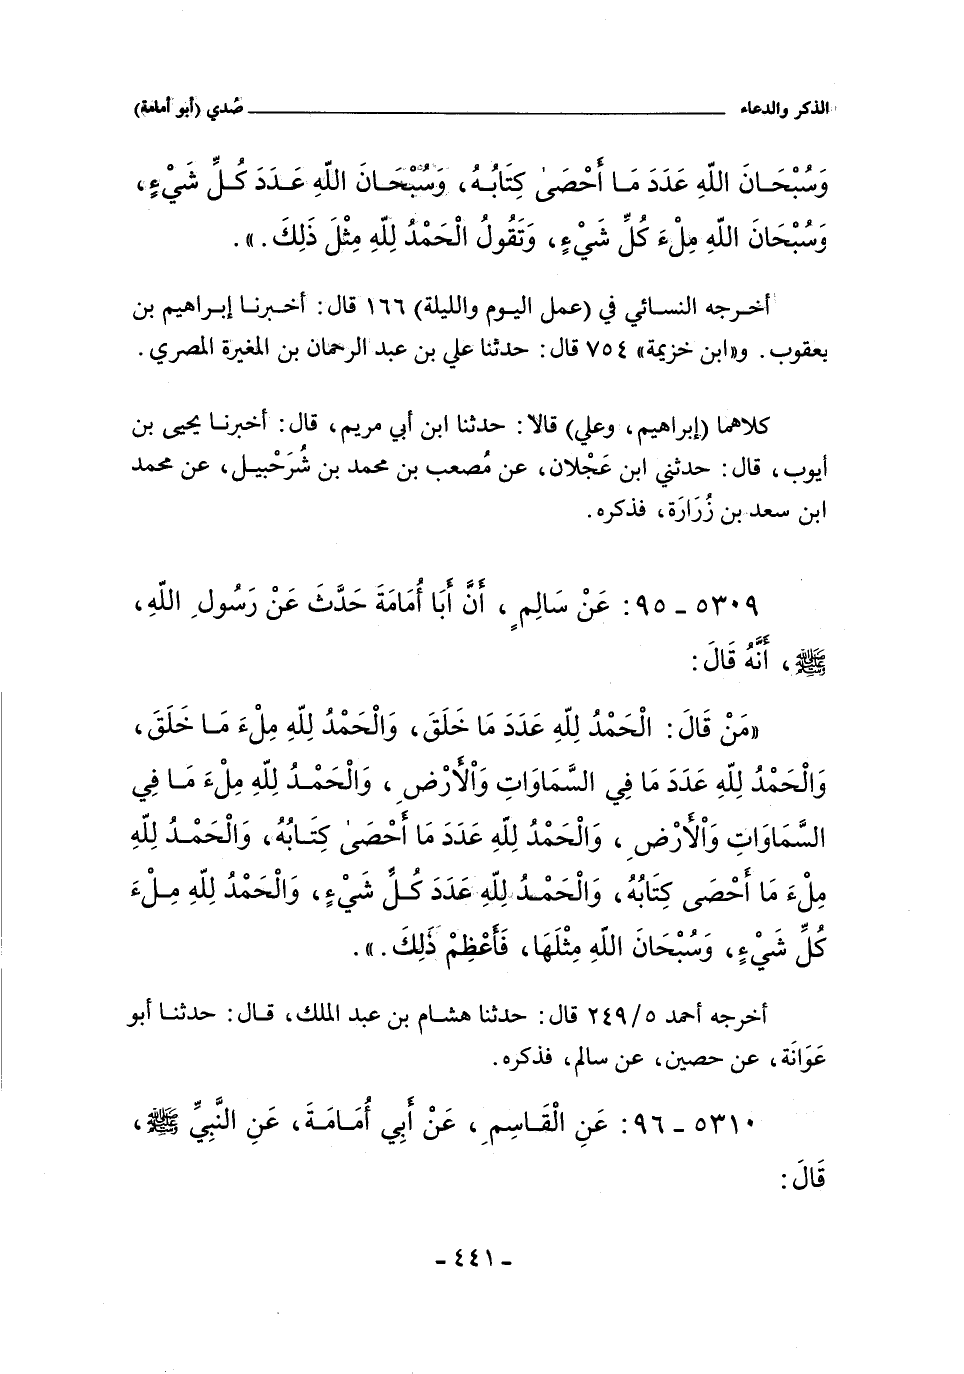 الذكر والدعاء ــــــــــــــــــــ صُدي (أبو أمامة)
وَسُبْحَانَ اللّهِ عَدَدَ مَا أَحْصَىٰ كِتَابُهُ، وَسُبْحَانَ اللّهِ عَدَدَ كُلِّ شَيْءٍ،
وَسُبْحَانَ اللّهِ مِلْءَ كُلِّ شَيْءٍ، وَتَقُولُ الْحَمْدُ لِلّهِ مِثْلَ ذَلِكَ.».
أخرجه النسائي في (عمل اليوم والليلة) ١٦٦ قال: أخبرنا إبراهيم بن
يعقوب. و«ابن خزيمة» ٧٥٤ قال: حدثنا علي بن عبد الرحمان بن المغيرة المصري.
كلاهما (إبراهيم، وعلي) قالا: حدثنا ابن أبي مريم، قال: أخبرنا يحيى بن
أيوب، قال: حدثني ابن عَجْلان، عن مُصعب بن محمد بن شُرَحْبيل، عن محمد
ابن سعد بن زُرَارَة، فذكره.
٥٣٠٩ - ٩٥: عَنْ سَالِمٍ، أَنَّ أَبَا أُمَامَةَ حَدَّثَ عَنْ رَسُولِ اللّهِ،
ﷺ، أَنَّهُ قَالَ:
«مَنْ قَالَ: الْحَمْدُ لِلّهِ عَدَدَ مَا خَلَقَ، وَالْحَمْدُ لِلّهِ مِلْءَ مَا خَلَقَ،
وَالْحَمْدُ لِلّهِ عَدَدَ مَا فِي السَّمَاوَاتِ وَالْأَرْضِ، وَالْحَمْدُ لِلّهِ مِلْءَ مَا فِي
السَّمَاوَاتِ وَالْأَرْضِ، وَالْحَمْدُ لِلّهِ عَدَدَ مَا أَحْصَىٰ كِتَابُهُ، وَالْحَمْدُ لِلّهِ
مِلْءَ مَا أَحْصَى كِتَابُهُ، وَالْحَمْدُ لِلّهِ عَدَدَ كُلِّ شَيْءٍ، وَالْحَمْدُ لِلّهِ مِلْءَ
كُلِّ شَيْءٍ، وَسُبْحَانَ اللّهِ مِثْلَهَا، فَأَعْظِمْ ذَلِكَ.».
أخرجه أحمد ٢٤٩/٥ قال: حدثنا هشام بن عبد الملك، قال: حدثنا أبو
عَوَانَة، عن حصين، عن سالم، فذكره.
٥٣١٠ - ٩٦: عَنِ الْقَاسِمِ، عَنْ أَبِي أُمَامَةَ، عَنِ النَّبِيِّ ﷺ،
قَالَ:
- ٤٤١ -